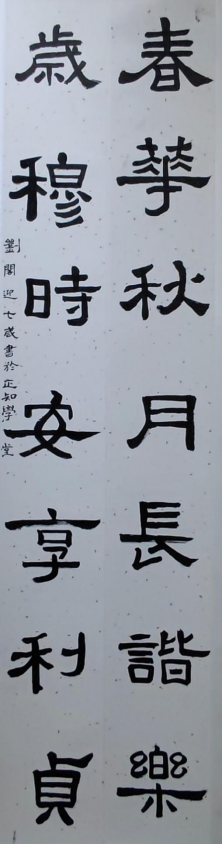 春華秋月長諧樂
歲穆時安享利貞
劉閣迎七歲書於正知學堂